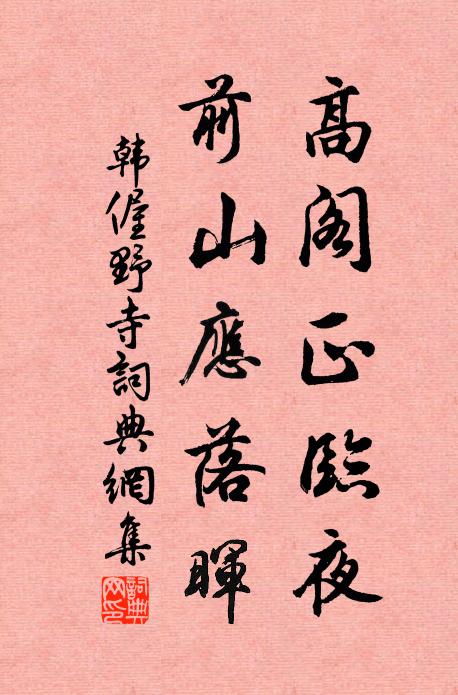 高閣正臨夜
前山應落暉
韓偓野寺詞典網集
詞典網印